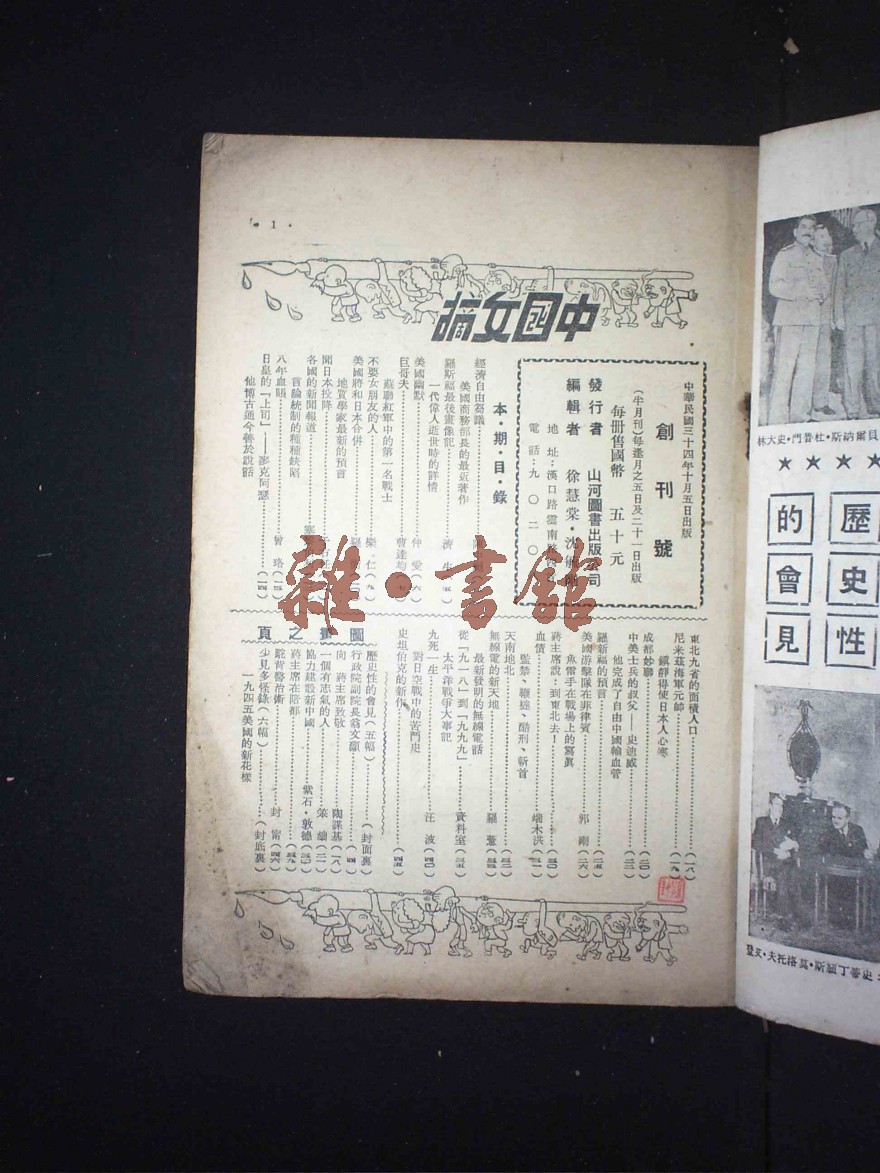 1
中國文摘
中華民國三十四年十月五日出版
創刊號
(半月刊)每逢月之五日及二十一日出版
每冊售國幣 五十元
發行者 山河圖書出版公司
編輯者 徐慧棠・沈
地址:漢口路雲南路
電話:九〇二〇
本・期・目・錄
經濟自由芻議
美國商務部長的最近著作
羅斯福最後畫像記 濟生
一代偉人逝世時的詳情
美國幽默 仲愛(六)
巨哥夫 曹達均
蘇聯紅軍中的第一名戰士
不要女朋友的人 樂仁(九)
美國將和日本合併
地質學家最新的預言
聞日本投降
各國的新聞報道
言論統制的種種缺陷
八年血賬 曾珞
日皇的「上司」——麥克阿瑟
他博古通今善於說話
東北九省的面積人口(一八)
尼米茲海軍元帥(一九)
鎮靜得使日本人心寒
成都妙聯(二〇)
中美士兵的叔父——史迪威
他完成了自由中國輸血管
羅新福的預言(二五)
美國游擊隊在菲律賓 郭剛(二六)
魚雷手在戰場上的寫真
蔣主席說:到東北去!
血債 端木洪
監禁、鞭撻、酷刑、斬首
天南地北
無線電的新天地
最新發明的無線電話
從「九一八」到「九九九」 資料室
太平洋戰爭大事記
九死一生 汪波
對日空戰中的苦鬥史
史坦伯克的新作
圖畫之頁
歷史性的會見(五幅)(封面裏)
行政院副院長翁文灝
向 蔣主席致敬 陶謀基(一八)
一個有志氣的人 笨
協力建設新中國 紫石・敦德
蔣主席在陪都
駝背醫治術 封甯
少見多怪錄(六幅)(封底裏)
一九四五美國的新花樣
林大史・門魯杜・斯納爾貝
★★★★
歷史性
的會見
史蒂丁紐斯・莫洛托夫・艾登